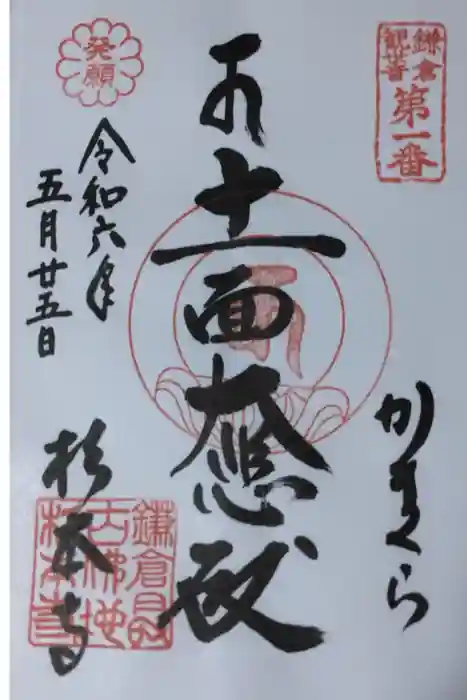 鎌倉
観音
第一番
かまくら
十一面大悲殿
発願
令和六年
五月廿五日
杉本寺
鎌倉最
古佛地
杉本寺